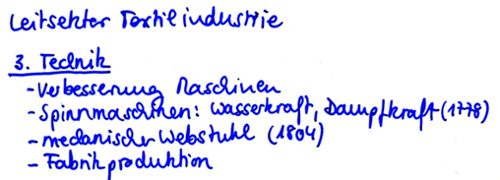 Leitsektor Textilindustrie
3. Technik
- Verbesserung Maschinen
- Spinnmaschinen: Wasserkraft, Dampfkraft (1778)
- mechanischer Webstuhl (1804)
- Fabrikproduktion